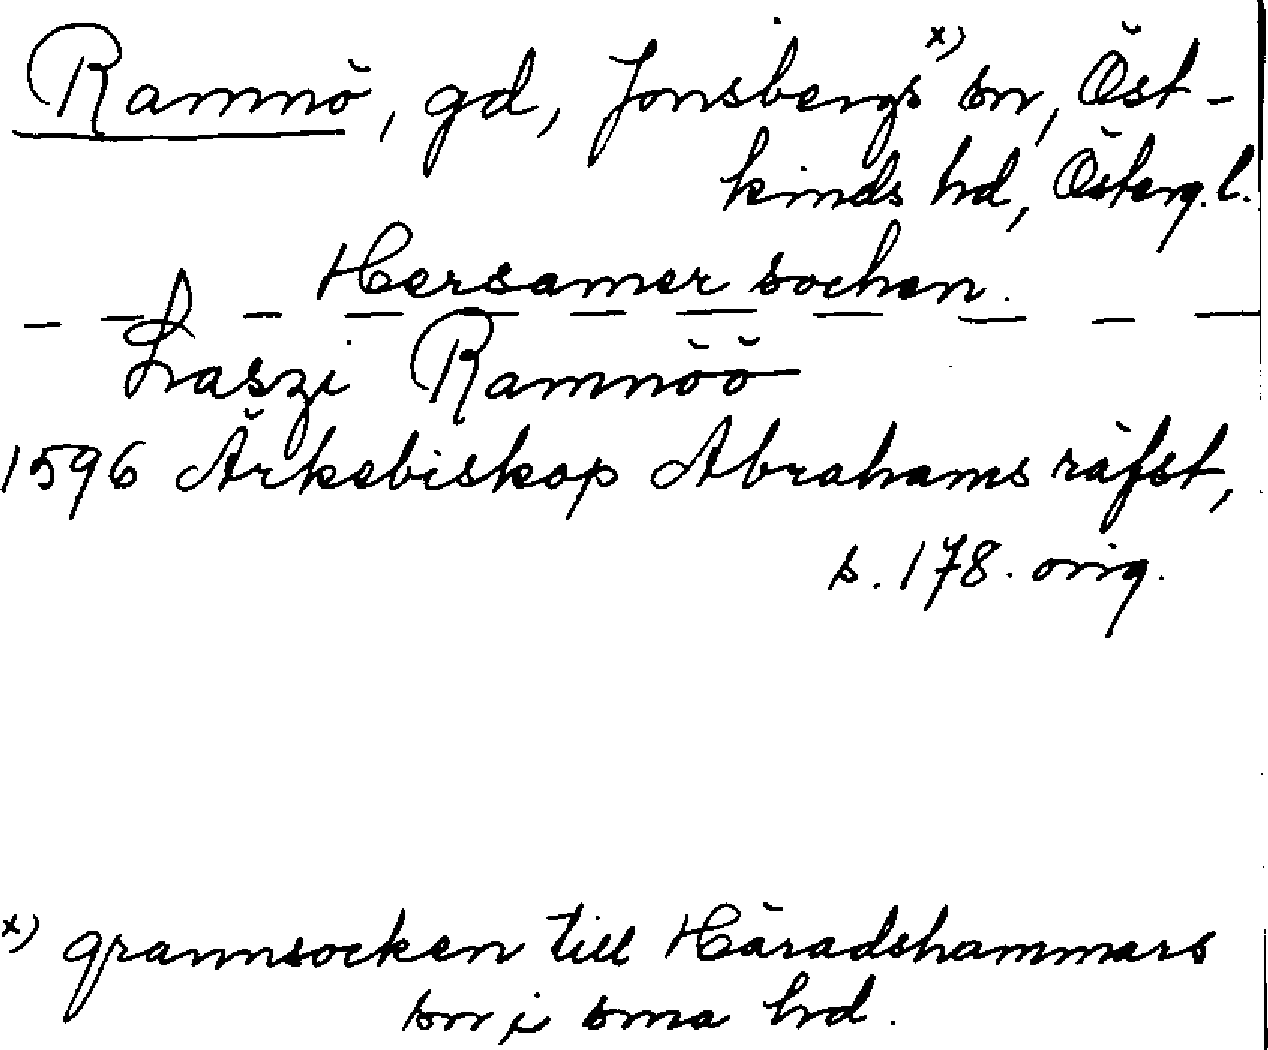 Ramnö, gd, Jonsbergs x) sn, Öst-
kinds hd, Österg. l.
Hersamer sochen.
Laszi Ramnöö
1596 Ärkebiskop Abrahams räfst,
s. 178. orig.
x) grannsocken till Häradshammars
sn i sma hrd.